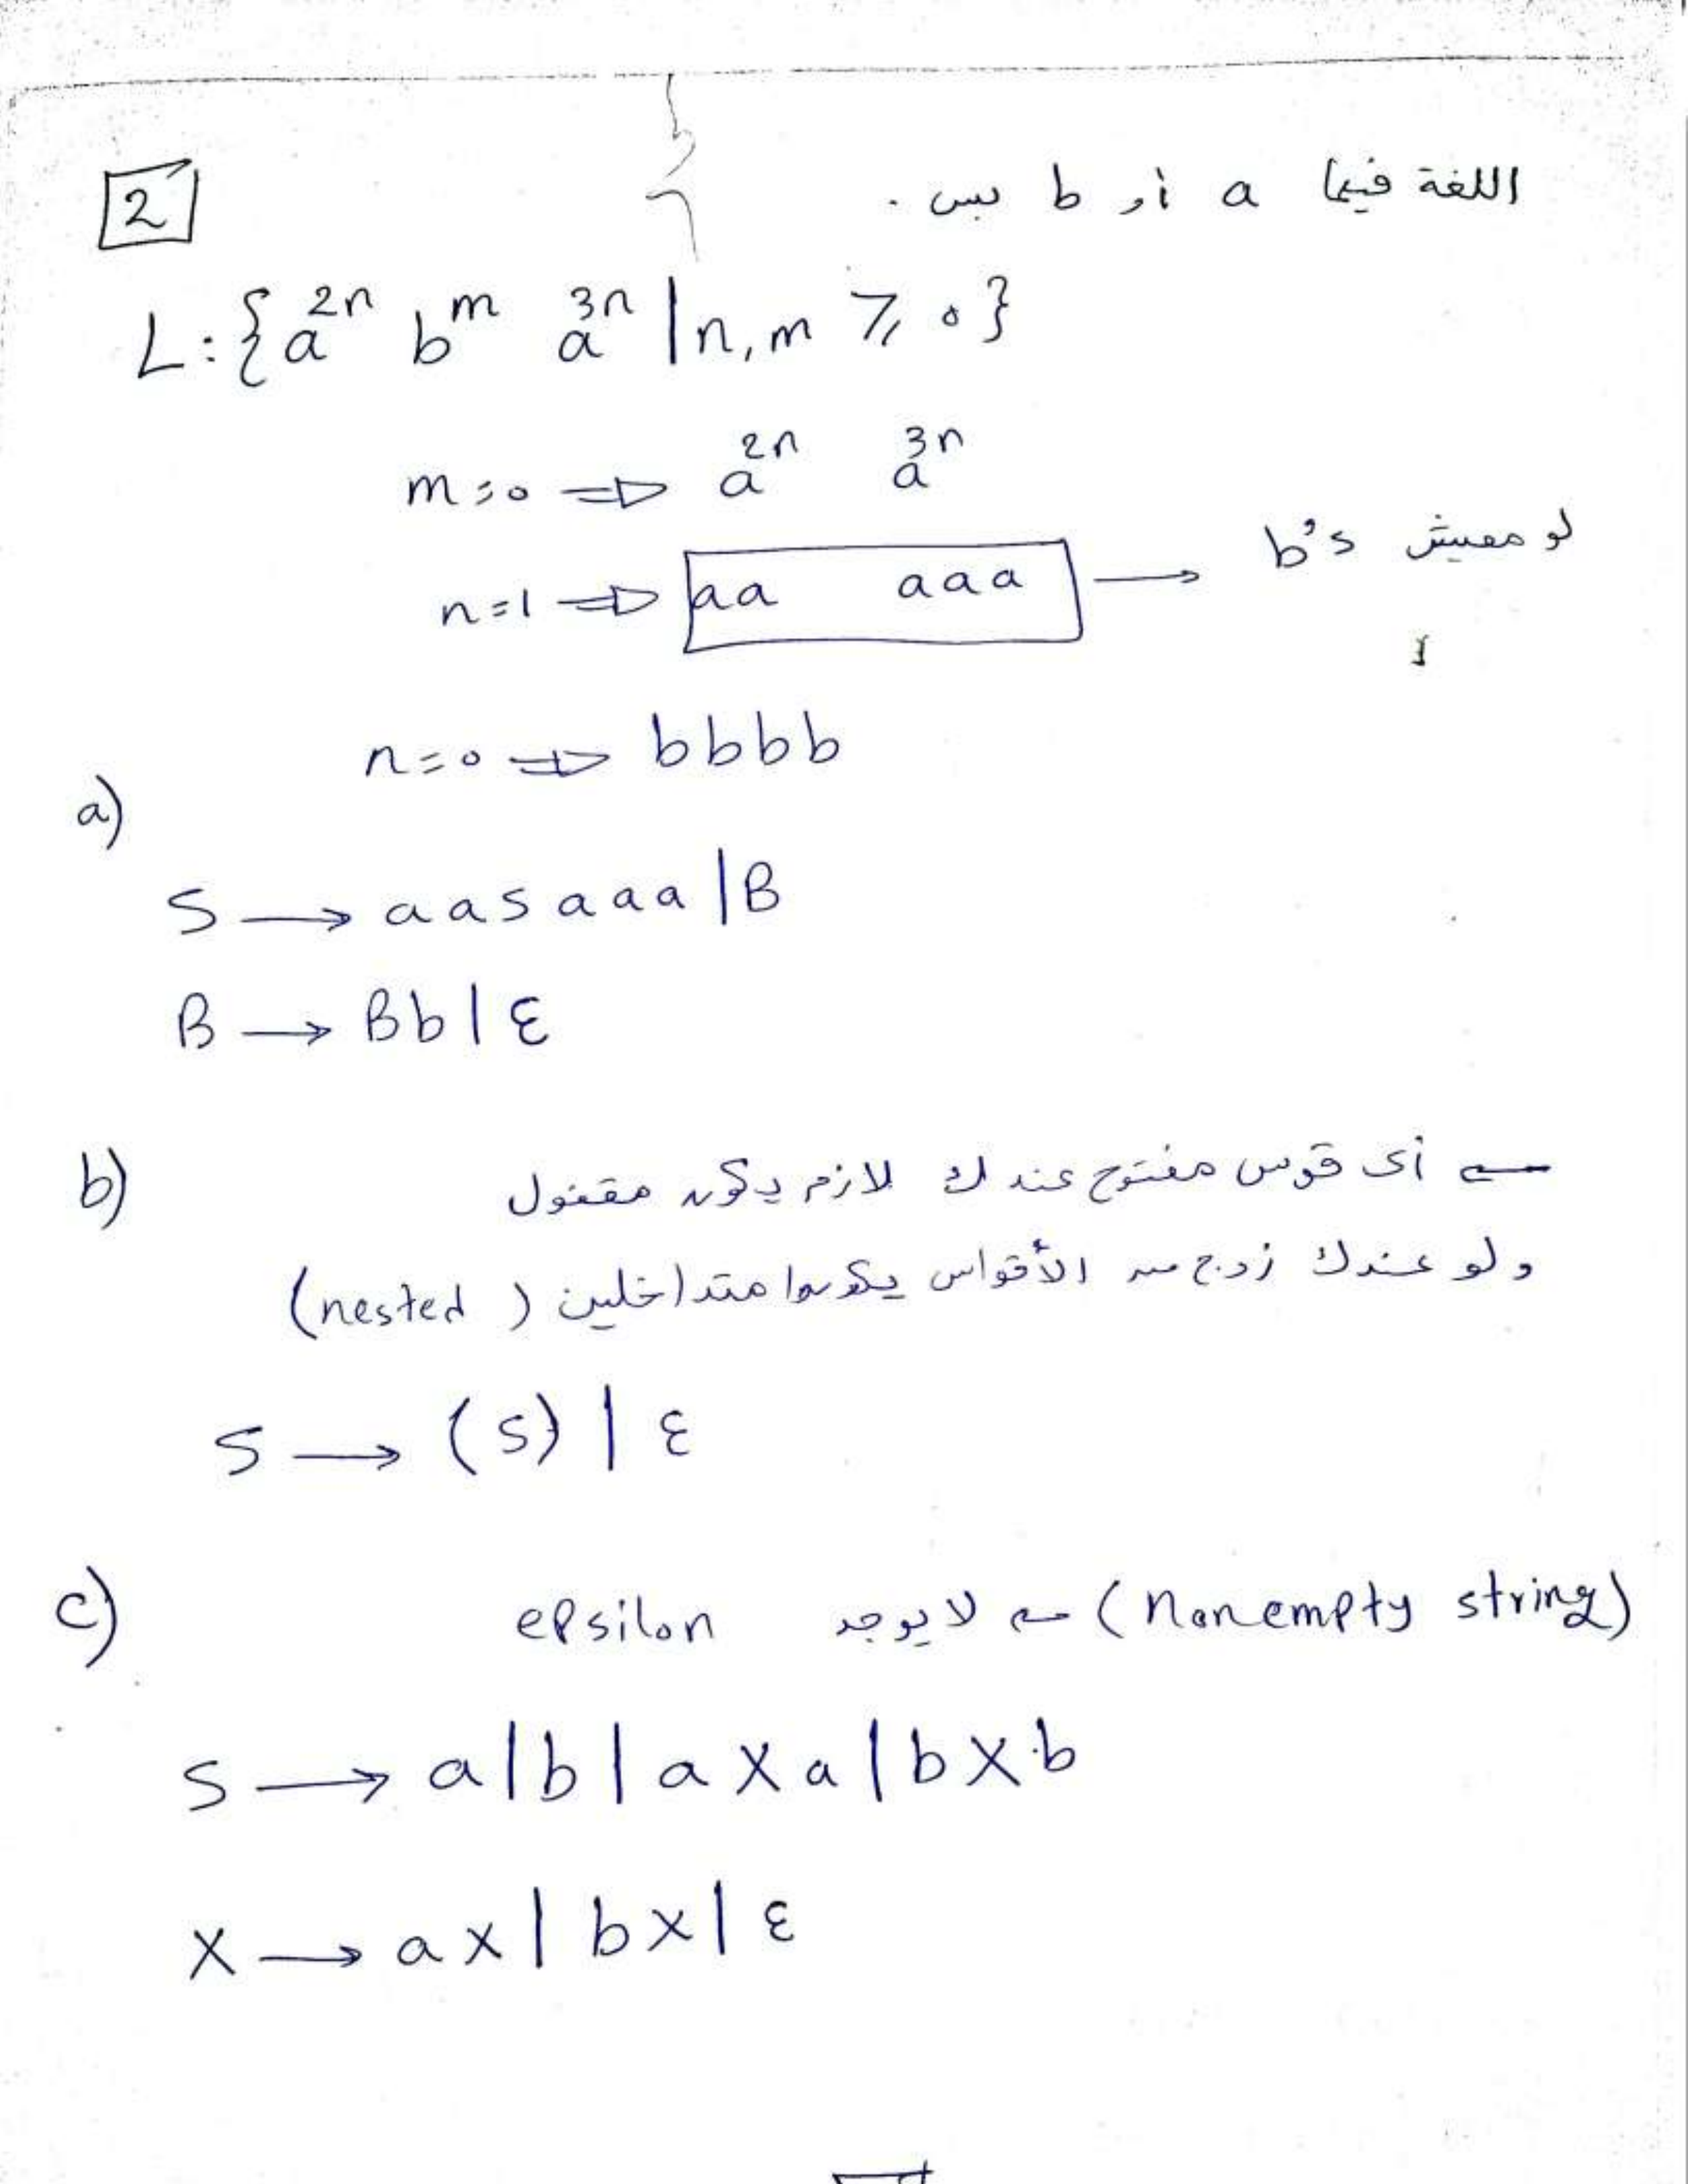 2
اللغة فيها a أو b بس .
L:{a^2n b^m a^3n | n,m ≥ 0}
m=0 ⇒ a^2n a^3n
n=1 ⇒ aa aaa → لو مفيش b's
n=0 ⇒ bbbb
a)
S → aasaaa | B
B → Bb | ε
b) أى قوس مفتوح عندك لازم يكون مقفول
ولو عندك زوج من الأقواس يكونوا متداخلين (nested)
S → (S) | ε
c) (Nonempty string) → لا يوجد epsilon
S → a|b|aXa|bXb
X → aX|bX|ε